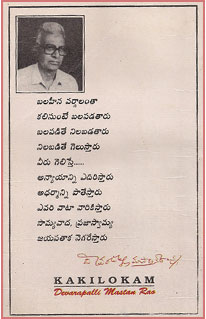 బలహీన వర్గాలంతా
కలిసుంటే బలపడతారు
బలపడితే నిలబడతారు
నిలబడితే గెలుస్తారు
వీరు గెలిస్తే.....
అన్యాయాన్ని ఎదిరిస్తారు
అధర్మాన్ని పాతేస్తారు
ఎవరి వాటా వారికిస్తారు
సామ్యవాద, ప్రజాస్వామ్య
జయపతాక నెగరేస్తారు
KAKILOKAM
Devarapalli Mastan Rao